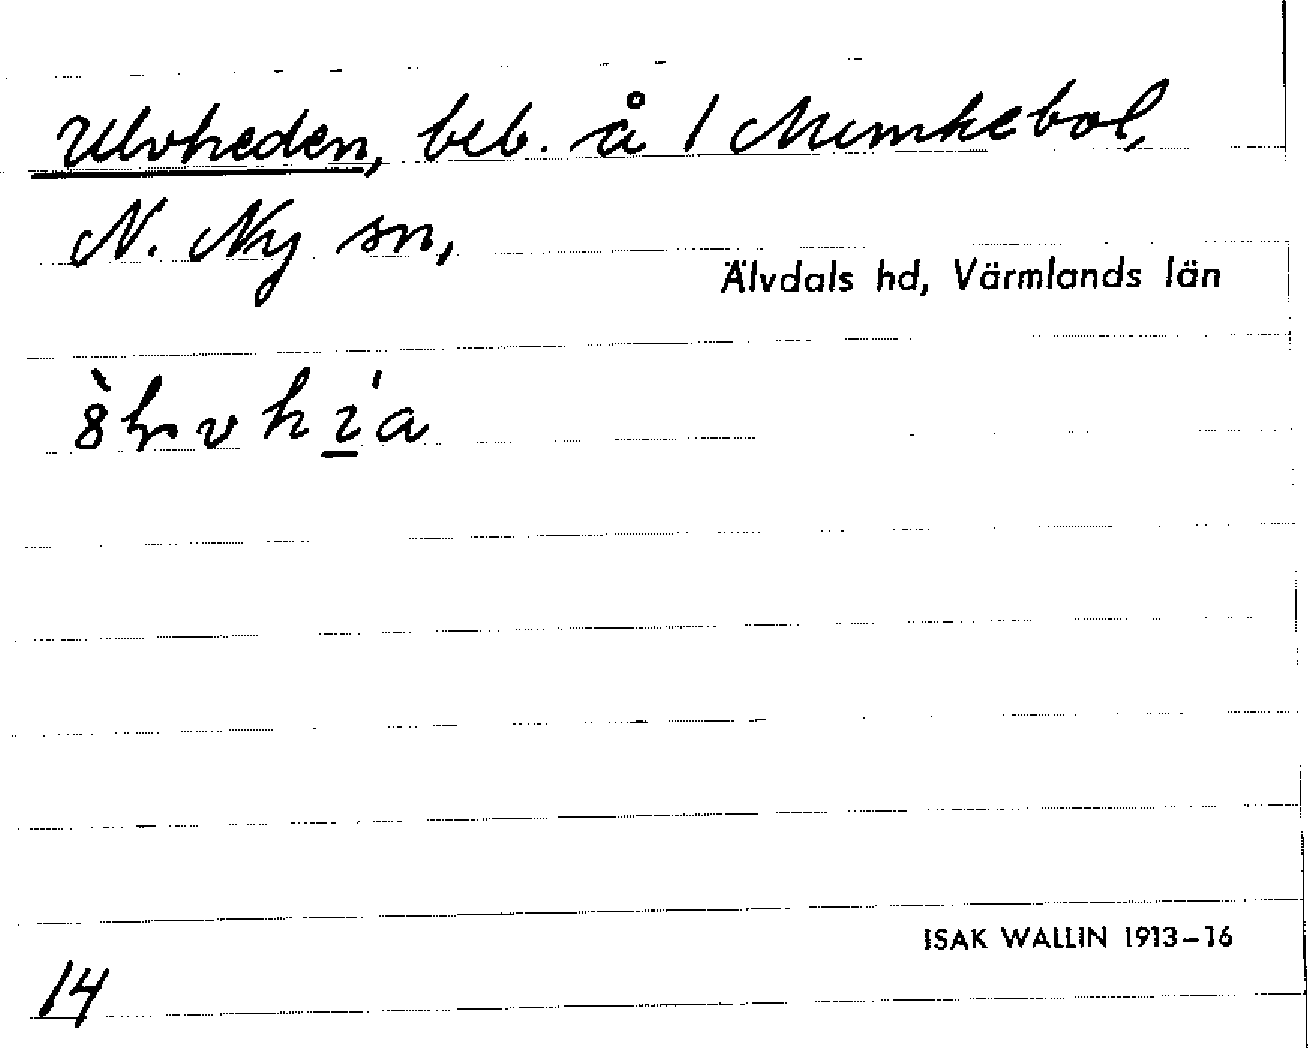 Ulvheden, beb. å 1 Munkebol,
N. Ny sn,
Älvdals hd, Värmlands län
ISAK WALLIN 1913–16
14